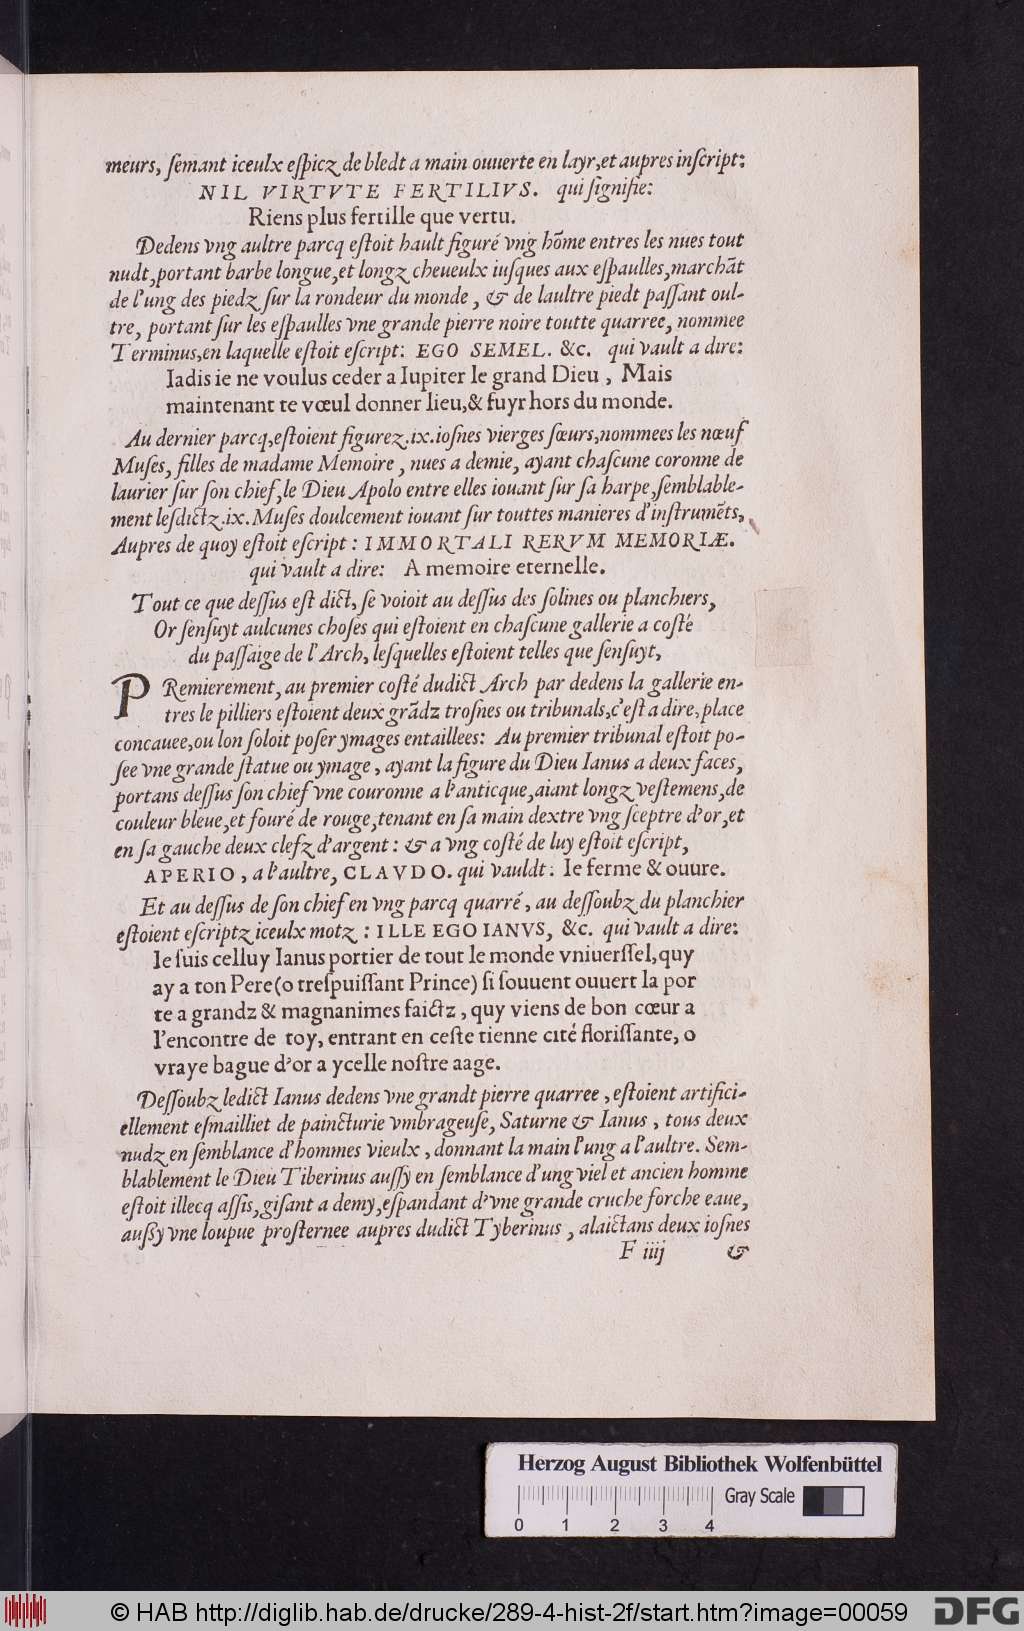 meurs, ſemant iceulx eſpicz de bledt a main ouuerte en layr,et aupres inſcript:
NIL VIRTVTE FERTILIVS. qui ſignifie:
Riens plus fertille que vertu.
Dedens vng aultre parcq eſtoit hault figuré vng hõme entres les nues tout
nudt,portant barbe longue,et longz cheueulx iuſques aux eſpaulles,marchãt
de l'ung des piedz ſur la rondeur du monde, & de laultre piedt paſſant oul-
tre, portant ſur les eſpaulles vne grande pierre noire toutte quarree, nommee
Terminus,en laquelle eſtoit eſcript: EGO SEMEL. &c. qui vault a dire:
Iadis ie ne voulus ceder a Iupiter le grand Dieu, Mais
maintenant te vœul donner lieu,& fuyr hors du monde.
Au dernier parcq,eſtoient figurez.ix.ioſnes vierges ſœurs,nommees les nœuf
Muſes, filles de madame Memoire, nues a demie, ayant chaſcune coronne de
laurier ſur ſon chief,le Dieu Apolo entre elles iouant ſur ſa harpe,ſemblable-
ment leſdictz.ix.Muſes doulcement iouant ſur touttes manieres d'inſtrumẽts,
Aupres de quoy eſtoit eſcript: IMMORTALI RERVM MEMORIÆ.
qui vault a dire: A memoire eternelle.
Tout ce que deſſus eſt dict, ſe voioit au deſſus des ſolines ou planchiers,
Or ſenſuyt aulcunes choſes qui eſtoient en chaſcune gallerie a coſté
du paſſaige de l'Arch, leſquelles eſtoient telles que ſenſuyt,
PRemierement, au premier coſté dudict Arch par dedens la gallerie en-
tres le pilliers eſtoient deux grãdz troſnes ou tribunals,c'eſt a dire,place
concauee,ou lon ſoloit poſer ymages entaillees: Au premier tribunal eſtoit po-
ſee vne grande ſtatue ou ymage, ayant la figure du Dieu Ianus a deux faces,
portans deſſus ſon chief vne couronne a l'anticque,aiant longz veſtemens,de
couleur bleue,et fouré de rouge,tenant en ſa main dextre vng ſceptre d'or,et
en ſa gauche deux clefz d'argent: & a vng coſté de luy eſtoit eſcript,
APERIO, a l'aultre, CLAVDO. qui vauldt: Ie ferme & ouure.
Et au deſſus de ſon chief en vng parcq quarré, au deſſoubz du planchier
eſtoient eſcriptz iceulx motz: ILLE EGO IANVS, &c. qui vault a dire:
Ie ſuis celluy Ianus portier de tout le monde vniuerſſel,quy
ay a ton Pere(o treſpuiſſant Prince) ſi ſouuent ouuert la por
te a grandz & magnanimes faictz, quy viens de bon cœur a
l'encontre de toy, entrant en ceſte tienne cité floriſſante, o
vraye bague d'or a ycelle noſtre aage.
Deſſoubz ledict Ianus dedens vne grandt pierre quarree, eſtoient artifici-
ellement eſmailliet de paincturie vmbrageuſe, Saturne & Ianus, tous deux
nudz en ſemblance d'hommes vieulx, donnant la main l'ung a l'aultre. Sem-
blablement le Dieu Tiberinus auſſy en ſemblance d'ung viel et ancien homme
eſtoit illecq aſſis,giſant a demy,eſpandant d'vne grande cruche forche eaue,
auſſy vne loupue proſternee aupres dudict Tyberinus, alaictans deux ioſnes
F iiij &
Herzog August Bibliothek Wolfenbüttel
Gray Scale
0 1 2 3 4
© HAB http://diglib.hab.de/drucke/289-4-hist-2f/start.htm?image=00059 DFG